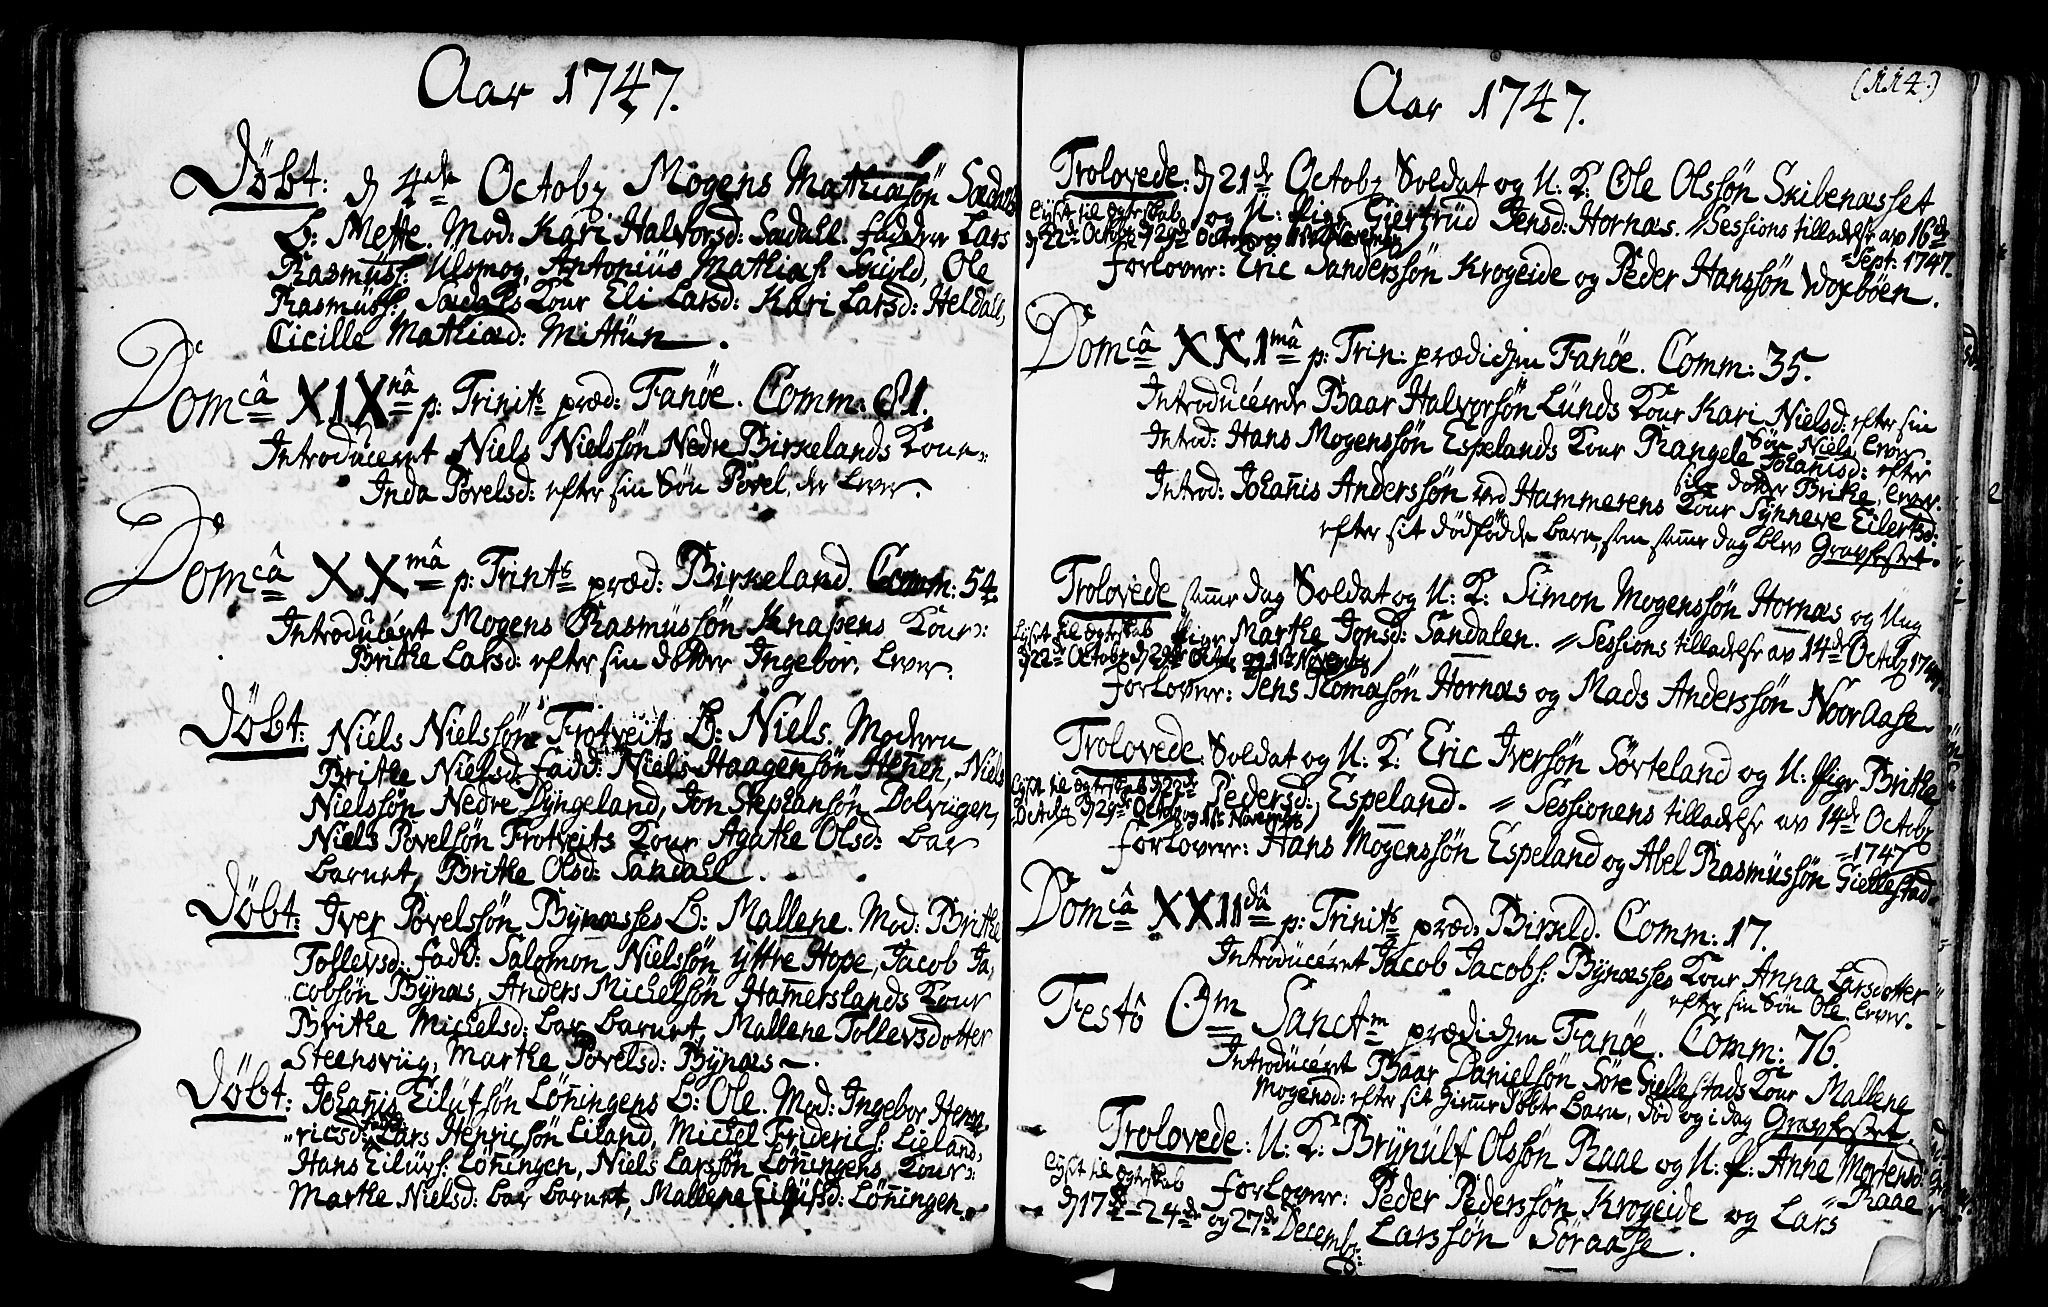 Aar 1747.
Döbt: d 4de Octobr Mogens Mathiasön Sædals
B: Mette. Mod: Kari Halvorsd: Sædall. fadderne Lars
Rasmüss: Ulsmog, Antonius Mathias: Skiold, Ole
Rasmüss: Sædals Kone Eli Larsd: Kari Larsd: Heldall,
Cicille Mathiæd: Mittün.
Domcâ XIXnâ p: Trinits præd: Fanöe. Comm: 81.
Introduceret Niels Nielssön Nedre Birkelands Kone:
Inda Povelsd: efter sin Sön Povel, der lever.
Domcâ XXmâ p: Trinits præd: Birkeland. Comm: 54
Introducéret Mogens Rasmüssön Knapens Kone:
Brithe Larsd: efter sin dotter Ingebor, lever.
Döbt: Niels Nielssön Trotveits B: Niels. Moderen
Brithe Nielsd: fadd: Niels Haagensön Henen, Niels
Nielssön Nedre Tyngeland, Jon Stephansön Dolviigen,
Niels Povelsön Trotveits Kone Agathe Olsd: bar
barnet, Brithe Olsd: Sandall.
Döbt: Iver Povelssön Bynæsses B: Mallene. Mod: Brithe
Tollevsd: fadd: Salomon Nielssön yttre Hope, Jacob Ja,
cobsön Bynæs, Anders Michelsön Hamerslands Kone
Brithe Michelsd: bar barnet, Mallene Tollevsdotter
Steensviig, Marthe Povelsd: Bynæs.
Döbt: Johanis Eilüfsön Löningens B: Ole. Mod: Ingebor Hen,
ricsd: fadd: Lars Henricsön Liland, Michel Friderics: Lieland,
Hans Eilüfs: Löningen, Niels Larssön Löningens Kone:
Marthe Nielsd: bar barnet, Mallene Eilüfsd: Löningen.
(114.)
Aar 1747.
Trolovede: d 21de Octobr Soldat og U: K: Ole Olssön Skibenæsset
og U: Pige Giertrüd Jensd: Hornæs. Sessions tilladelse av 16de
Sept: 1747.
lyst til Egteskab
d 22de Octobr d 29de Octobr og 1ste November
forlover: Eric Sanderssön Krogeide og Peder Hanssön Woxböen.
Domcâ XX1mâ p: Trin: prædicken Fanöe. Comm: 35.
Introducérede Baar Halvorsön Lünds Kone Kari Nielsd: efter sin
Sön Niels, lever.
Introd: Hans Mogenssön Espelands Kone Rangele Johanisd: efter
sin dotter Brithe, lever.
Introd: Johanis Anderssön ved Hammerens Kone Synneve Eilertsd:
efter sit dödfödde barn, som samme dag blev Gravfestet.
Trolovede samme dag Soldat og U: K: Simon Mogenssön Hornæs og Ung
Pige Marthe Jonsd: Sandalen. Sessions tilladelse av 14de Octobr 1747
lyst til Egteskab
d 22de Octobr d 29de Octobr og 1ste November
forlover: Jens Tomasön Hornæs og Mads Anderssön Noor Aase.
Trolovede: Soldat og U: K: Eric Iversön Sörteland og U: Pige Brithe
Pedersd: Espeland. Sessionens tilladelse av 14de Octobr
1747
lyst til Egteskab d 22de
Octobr d 29de Octobr og 1ste November
forlover: Hans Mogenssön Espeland og Abel Rasmüssön Giellestad.
Domcâ XXIIdâ p: Trinits præd: Birkeld. Comm: 17.
Introducéret Jacob Jacobs: Bynæsses Kone Anna Larsdotter
efter sin Sön Ole, lever.
Festô Om Sanctm prædicken Fanöe. Comm: 76.
Introducéret Baar Danielsön Söre Giellestads Kone Mallene
Mogensd: efter sit hiemme döbte barn, död og i dag Gravfestet.
Trolovede: U: K: Brynülf Olssön Raae og U: P: Anne Mortensd:
Raae
lyst til Egteskab
d 17de - 24de og 27de Decembr:
forlover: Peder Pederssön Krogeide og Lars
Larssön Söraase.